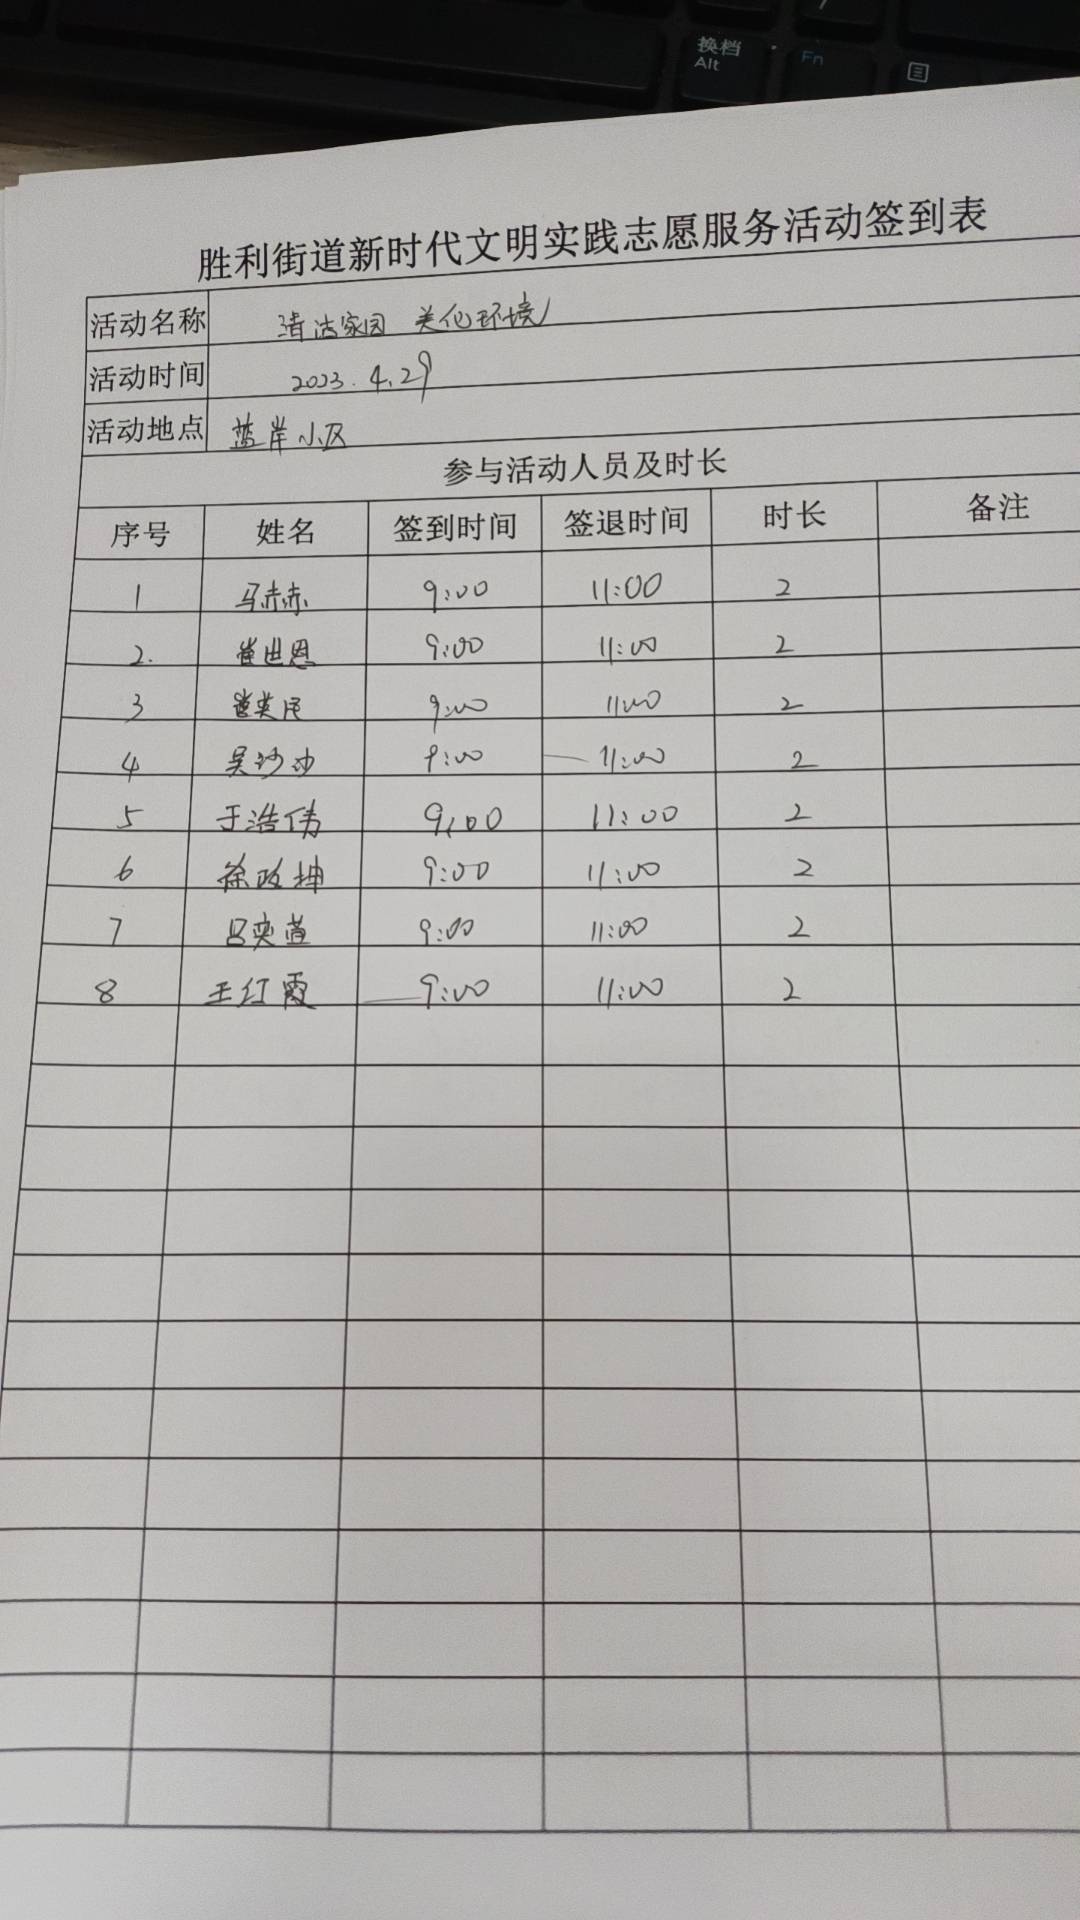 换档
Alt
Fn
胜利街道新时代文明实践志愿服务活动签到表
活动名称 清洁家园 美化环境
活动时间 2023.4.29
活动地点 蓝岸小区
参与活动人员及时长
序号 姓名 签到时间 签退时间 时长 备注
1 马赤赤 9:00 11:00 2
2. 崔世恩 9:00 11:00 2
3 9:00 11:00 2
4 吴沙沙 9:00 11:00 2
5 于浩伟 9:00 11:00 2
6 徐政坤 9:00 11:00 2
7 吕奕萱 9:00 11:00 2
8 王红霞 9:00 11:00 2